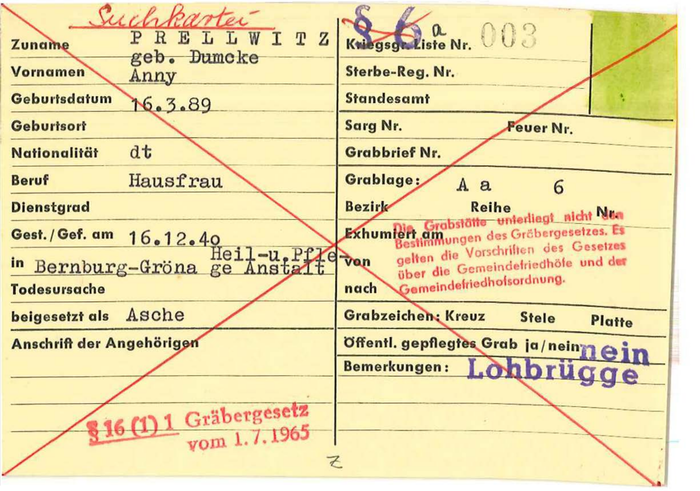 Suchkartei
Zuname PRELLWITZ
geb. Dumcke
Vornamen Anny
Geburtsdatum 16.3.89
Geburtsort
Nationalität dt
Beruf Hausfrau
Dienstgrad
Gest./Gef. am 16.12.40
in Bernburg-Gröna Heil-u.Pfle-
ge Anstalt
Todesursache
beigesetzt als Asche
Anschrift der Angehörigen
§ 16 (1) 1 Gräbergesetz
vom 1.7.1965
§ 6 a
Kriegsgr. Liste Nr. 003
Sterbe-Reg. Nr.
Standesamt
Sarg Nr. Feuer Nr.
Grabbrief Nr.
Grablage: A a 6
Bezirk Reihe Nr.
Exhumiert am
von
nach
Die Grabstätte unterliegt nicht den
Bestimmungen des Gräbergesetzes. Es
gelten die Vorschriften des Gesetzes
über die Gemeindefriedhöfe und der
Gemeindefriedhofsordnung.
Grabzeichen: Kreuz Stele Platte
Öffentl. gepflegtes Grab ja/nein nein
Bemerkungen: Lohbrügge
z